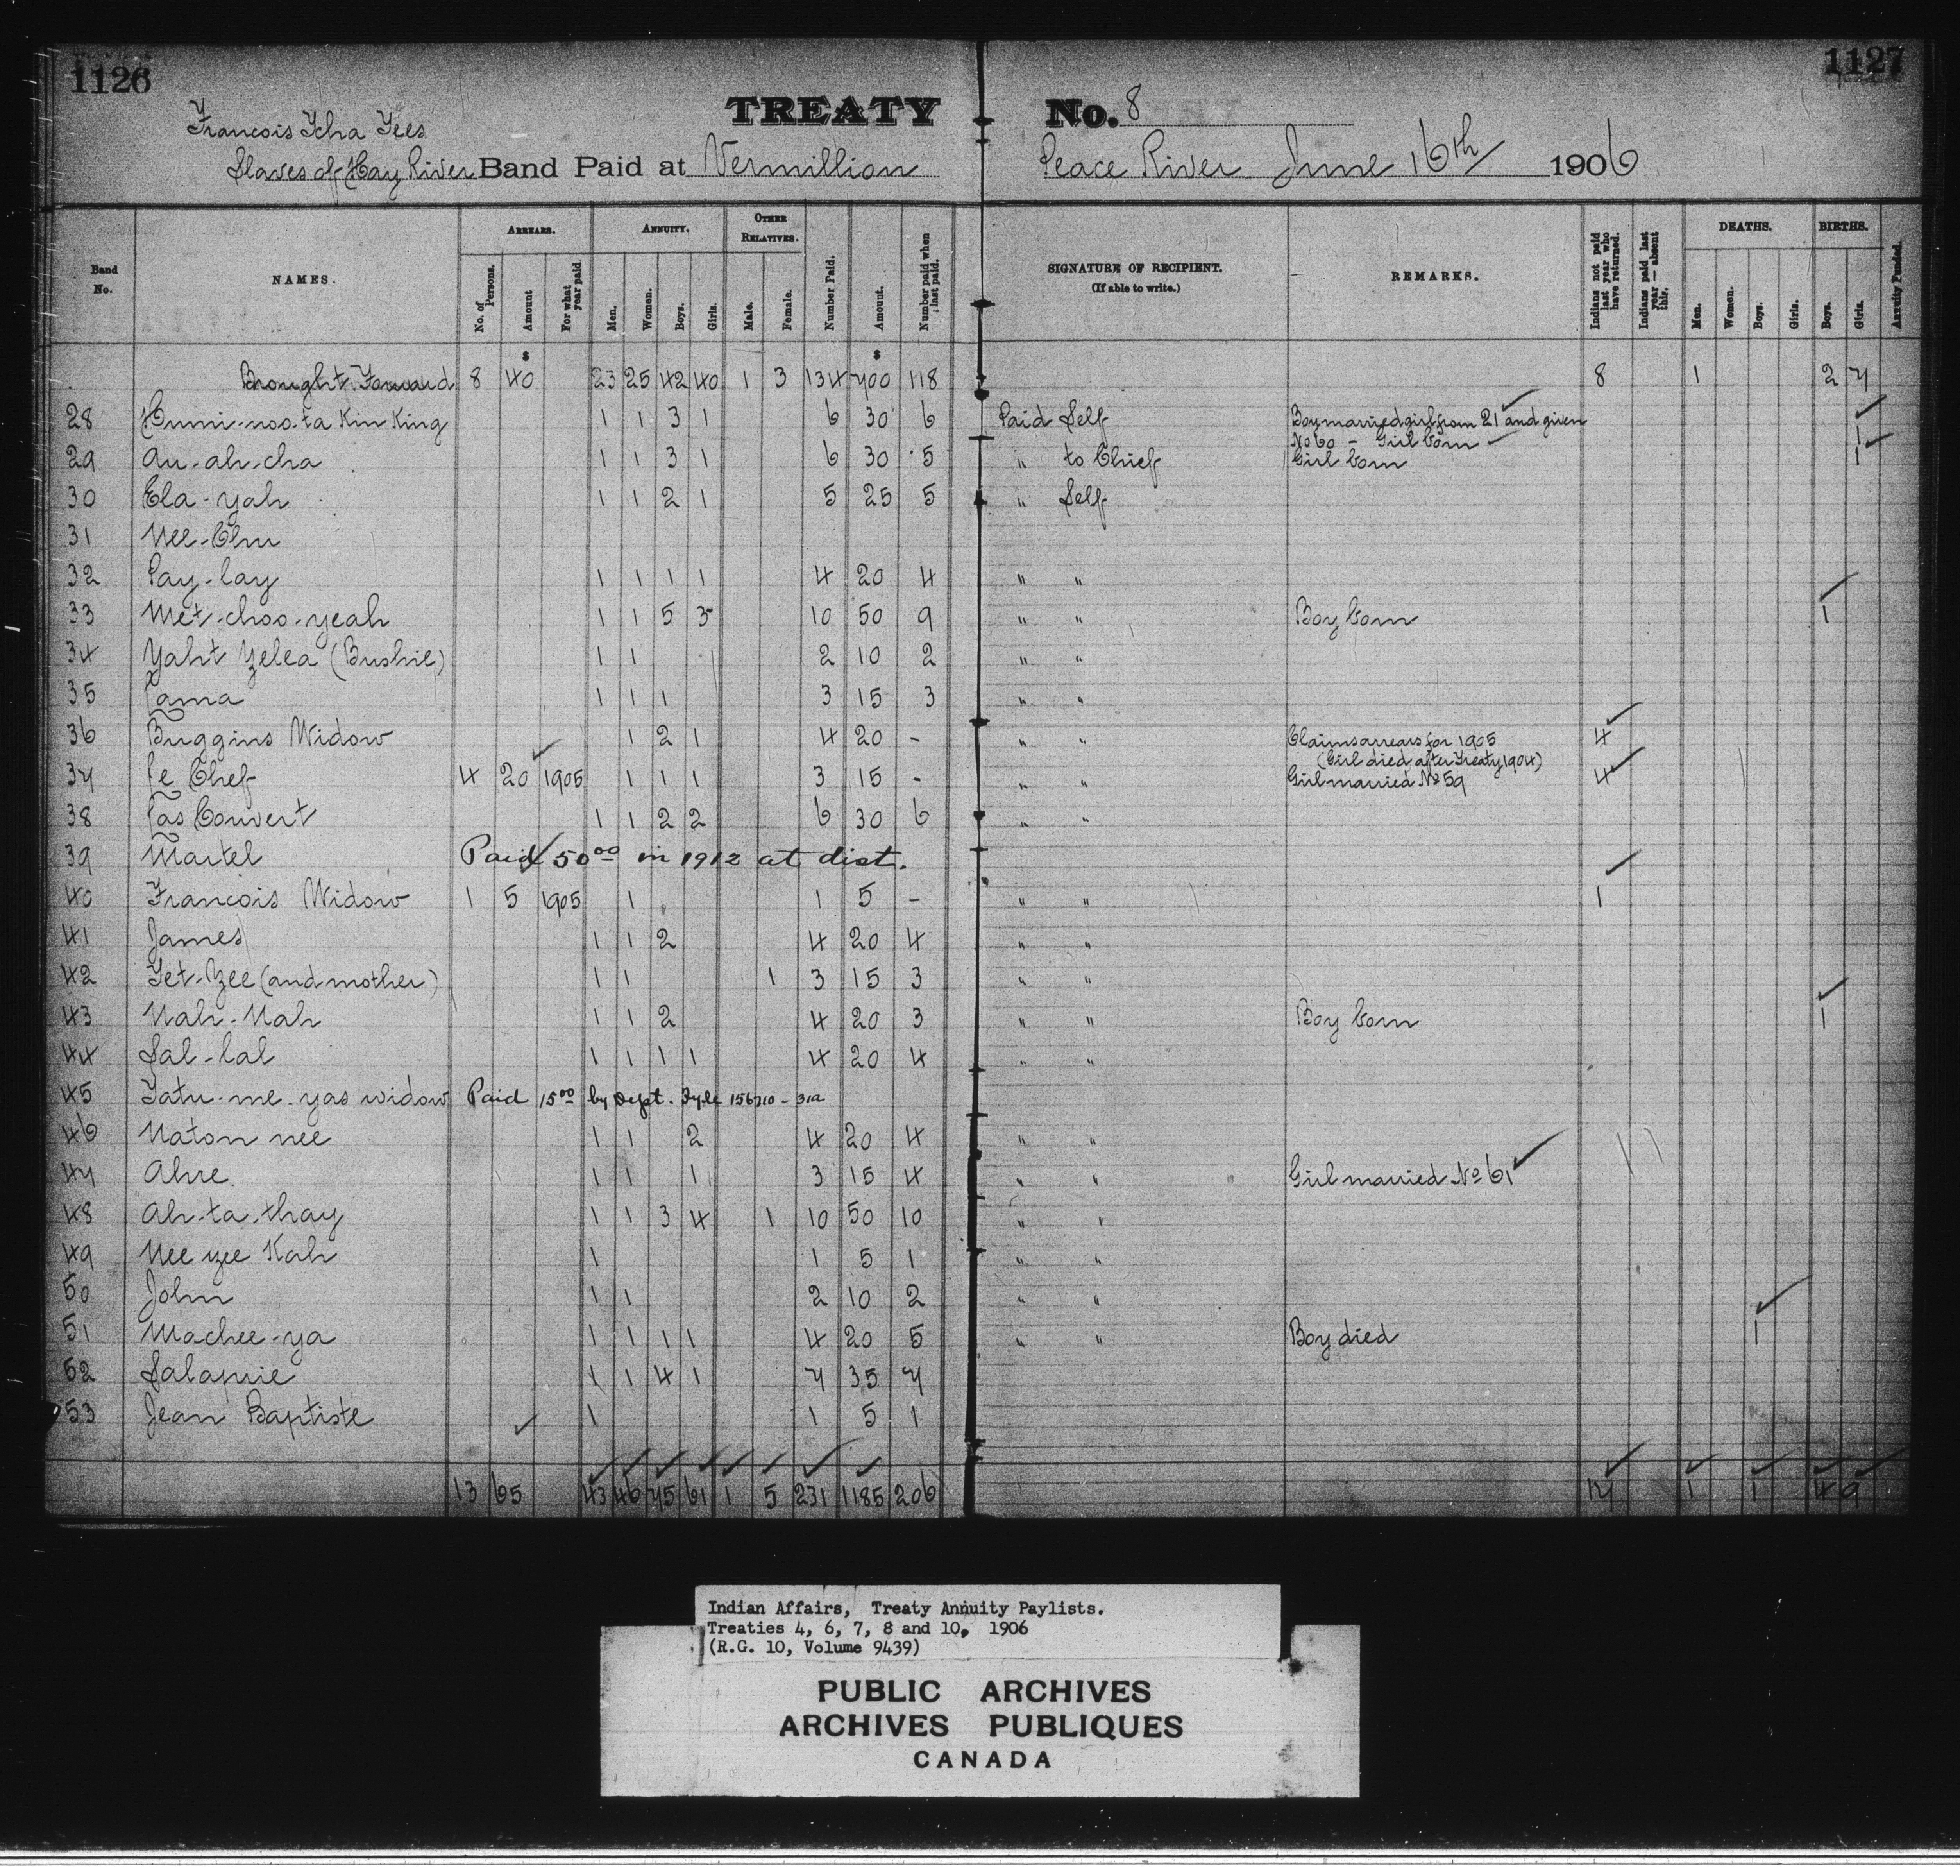 1126
1127
TREATY No. 8
Francois Tcha Tees
Slaves of Hay River Band Paid at Vermillion Peace River June 16th 1906
Band No. NAMES. ARREARS. No. of Persons. Amount For what year paid ANNUITY. Men. Women. Boys. Girls. OTHER RELATIVES. Male. Female. Number Paid. Amount. Number paid when last paid. SIGNATURE OF RECIPIENT. (If able to write.) REMARKS. Indians not paid last year who have returned. Indians paid last year — absent this. DEATHS. Men. Women. Boys. Girls. BIRTHS. Boys. Girls. Annuity Funded.
$ $
Brought Forward 8 40 23 25 42 40 1 3 134 700 118 8 1 2 7
28 Hunni-noo-ta Kin King 1 1 3 1 6 30 6 Paid Self Boy married girl from 21 and given No 60 - Girl born 1
29 Au-ah-cha 1 1 3 1 6 30 5 " to Chief Girl born 1
30 Ela-yah 1 1 2 1 5 25 5 " Self
31 Nee-Chu
32 Pay-lay 1 1 1 1 4 20 4 " "
33 Met-choo-yeah 1 1 5 3 10 50 9 " " Boy born 1
34 Yaht Yelea (Bushie) 1 1 2 10 2 " "
35 Tama 1 1 1 3 15 3 " "
36 Buggins Widow 1 2 1 4 20 - " " Claims arrears for 1905 4
(Girl died after Treaty 1904)
37 Le Chef 4 20 1905 1 1 1 3 15 - " " Girl married No 59 4
38 Pas Couvert 1 1 2 2 6 30 6 " "
39 Martel Paid 50 00 in 1912 at dist.
40 Francois Widow 1 5 1905 1 1 5 - " " 1
41 James 1 1 2 4 20 4 " "
42 Tet-Zee (and mother) 1 1 1 3 15 3 " "
43 Nah-Nah 1 1 2 4 20 3 " " Boy born 1
44 Sal-lal 1 1 1 1 4 20 4 " "
45 Tatu-me-yas widow Paid 15 00 by Dept. Fyle 156710-31a
46 Naton nee 1 1 2 4 20 4 " "
47 Ahre 1 1 1 3 15 4 " " Girl married No 61
48 Ah-ta-thay 1 1 3 4 1 10 50 10 " "
49 Nee zee Kah 1 1 5 1 " "
50 John 1 1 2 10 2 " "
51 Machee-ya 1 1 1 1 4 20 5 " " Boy died 1
52 Salaprie 1 1 4 1 7 35 7
53 Jean Baptiste 1 1 5 1
13 65 43 46 75 61 1 5 231 1185 206 17 1 1 4 9
Indian Affairs, Treaty Annuity Paylists.
Treaties 4, 6, 7, 8 and 10, 1906
(R.G. 10, Volume 9439)
PUBLIC ARCHIVES
ARCHIVES PUBLIQUES
CANADA